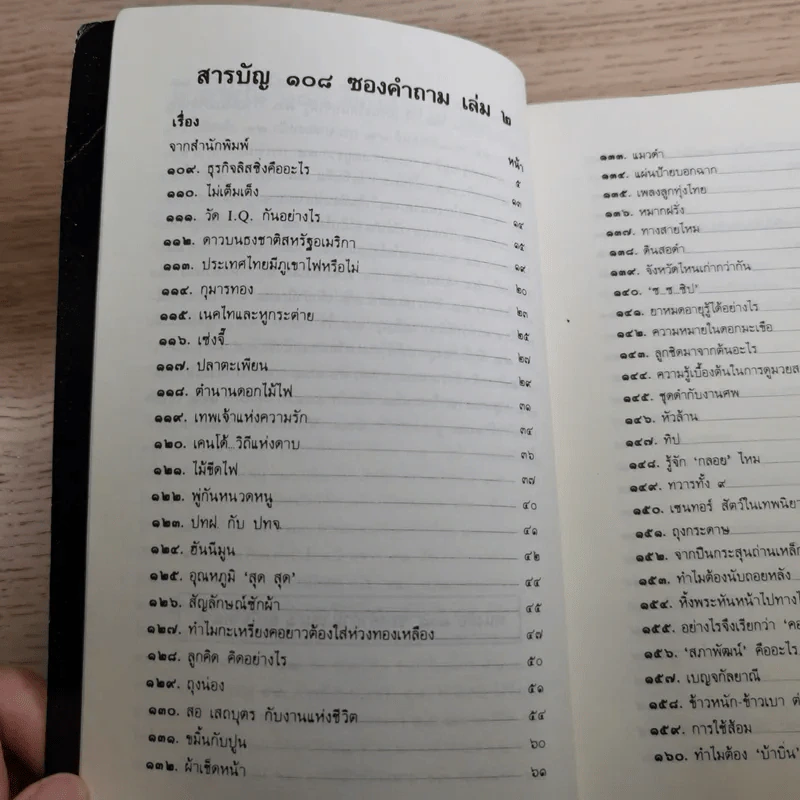 สารบัญ ๑๐๘ ซองคำถาม เล่ม ๒
เรื่อง หน้า
จากสำนักพิมพ์ ๕
๑๐๙. ธุรกิจลิสซิ่งคืออะไร ๑๓
๑๑๐. ไม่เต็มเต็ง ๑๔
๑๑๑. วัด I.Q. กันอย่างไร ๑๕
๑๑๒. ดาวบนธงชาติสหรัฐอเมริกา ๑๙
๑๑๓. ประเทศไทยมีภูเขาไฟหรือไม่ ๒๐
๑๑๔. กุมารทอง ๒๓
๑๑๕. เนคไทและหูกระต่าย ๒๕
๑๑๖. เซ่งจี๊ ๒๗
๑๑๗. ปลาตะเพียน ๒๙
๑๑๘. ตำนานดอกไม้ไฟ ๓๑
๑๑๙. เทพเจ้าแห่งความรัก ๓๔
๑๒๐. เคนโด้...วิถีแห่งดาบ ๓๖
๑๒๑. ไม้ขีดไฟ ๓๗
๑๒๒. พู่กันหนวดหนู ๔๐
๑๒๓. ปทฝ. กับ ปทจ. ๔๑
๑๒๔. ฮันนีมูน ๔๒
๑๒๕. อุณหภูมิ 'สุด สุด' ๔๔
๑๒๖. สัญลักษณ์ซักผ้า ๔๕
๑๒๗. ทำไมกะเหรี่ยงคอยาวต้องใส่ห่วงทองเหลือง ๔๗
๑๒๘. ลูกคิด คิดอย่างไร ๕๐
๑๒๙. ถุงน่อง ๕๑
๑๓๐. สอ เสถบุตร กับงานแห่งชีวิต ๕๔
๑๓๑. ขมิ้นกับปูน ๖๐
๑๓๒. ผ้าเช็ดหน้า ๖๑
๑๓๓. แมวดำ
๑๓๔. แผ่นป้ายบอกฉาก
๑๓๕. เพลงลูกทุ่งไทย
๑๓๖. หมากฝรั่ง
๑๓๗. ทางสายไหม
๑๓๘. ดินสอดำ
๑๓๙. จังหวัดไหนเก่ากว่ากัน
๑๔๐. 'ซ...ซ...ซิป'
๑๔๑. ยาหมดอายุรู้ได้อย่างไร
๑๔๒. ความหมายในดอกมะเขือ
๑๔๓. ลูกชิดมาจากต้นอะไร
๑๔๔. ความรู้เบื้องต้นในการดูมวยส
๑๔๕. ชุดดำกับงานศพ
๑๔๖. หัวล้าน
๑๔๗. ทิป
๑๔๘. รู้จัก 'กลอย' ไหม
๑๔๙. ทวารทั้ง ๙
๑๕๐. เซนทอร์ สัตว์ในเทพนิยา
๑๕๑. ถุงกระดาษ
๑๕๒. จากปืนกระสุนถ่านเหล็ก
๑๕๓. ทำไมต้องนับถอยหลัง
๑๕๔. หิ้งพระหันหน้าไปทางไ
๑๕๕. อย่างไรจึงเรียกว่า 'คอ
๑๕๖. 'สภาพัฒน์' คืออะไร
๑๕๗. เบญจกัลยาณี
๑๕๘. ข้าวหนัก-ข้าวเบา ต่
๑๕๙. การใช้ส้อม
๑๖๐. ทำไมต้อง 'บ้าบิ่น'